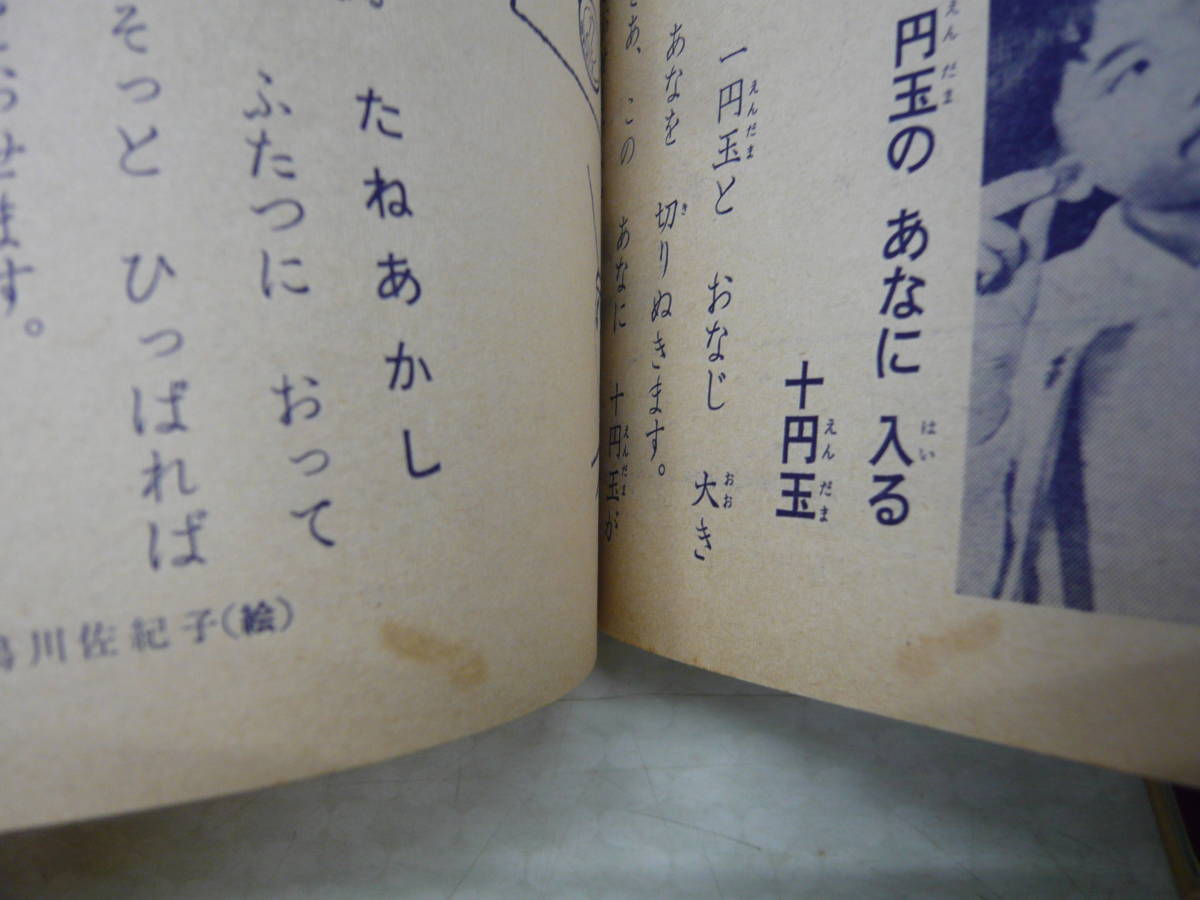 円玉の あなに 入る
十円玉
一円玉と おなじ 大き
あなを 切りぬきます。
あ、この あなに 十円玉が
たねあかし
ふたつに おって
そっと ひっぱれば
せます。
川佐紀子(絵)